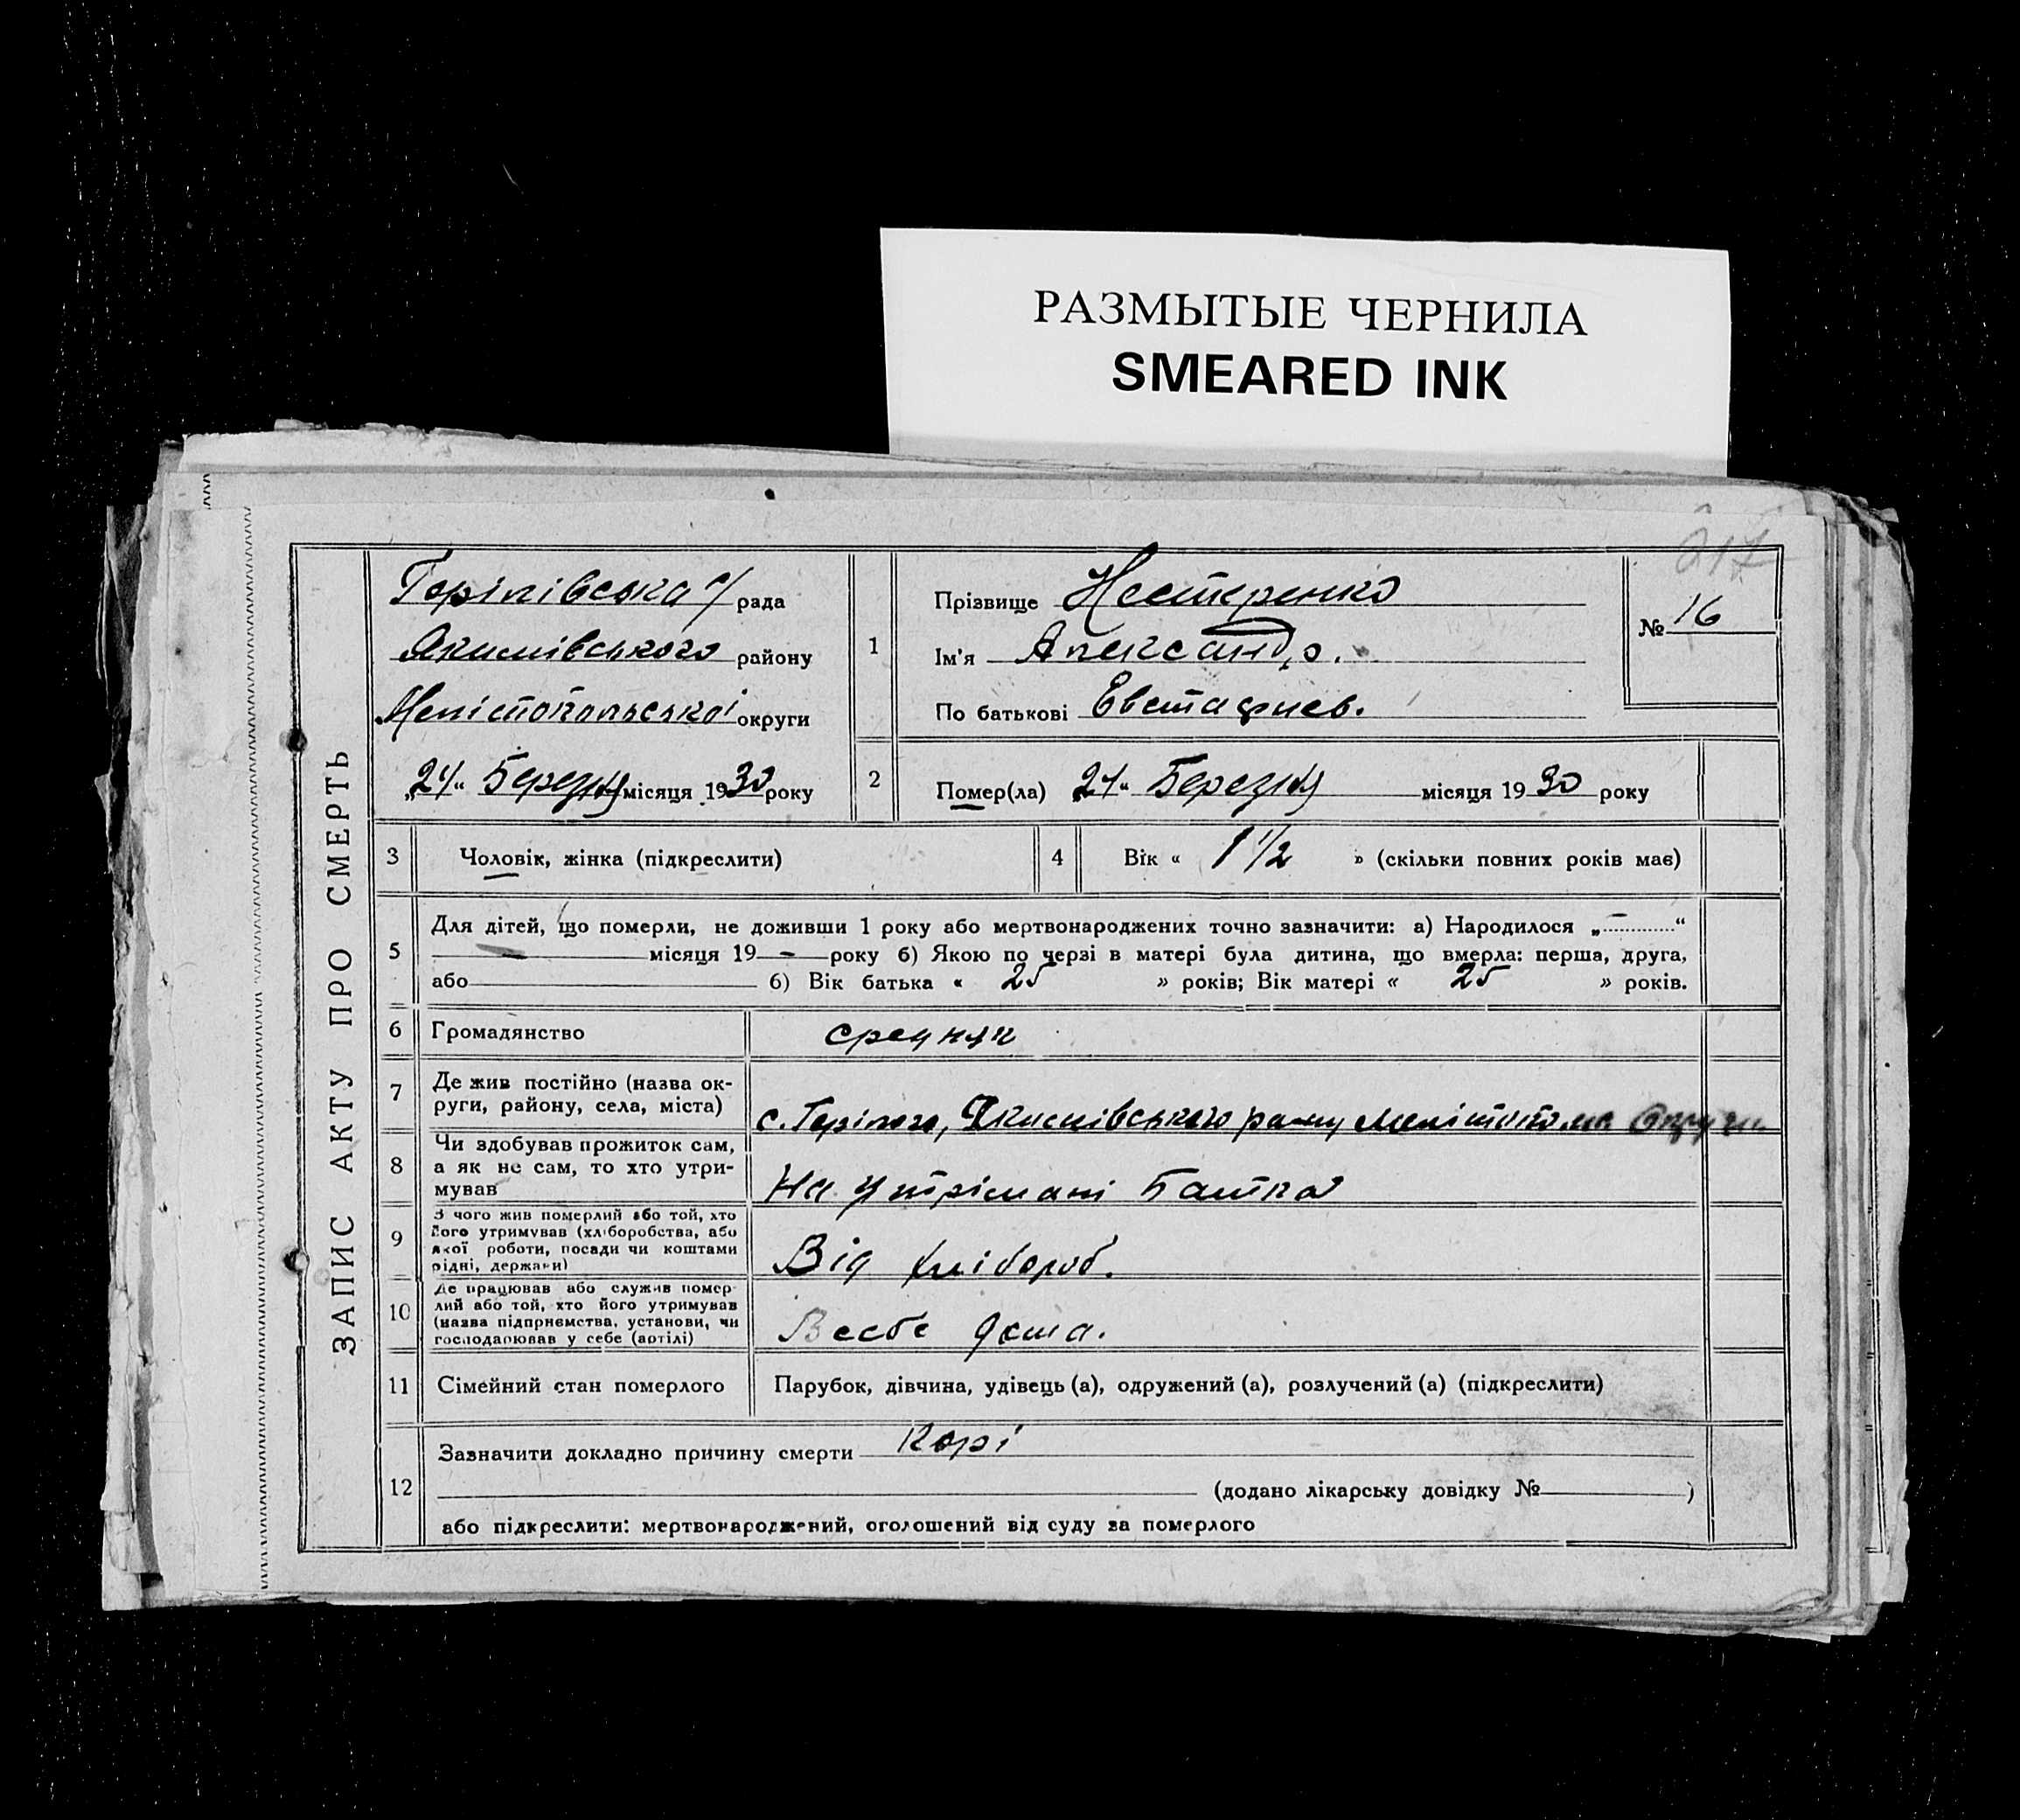 РАЗМЫТЫЕ ЧЕРНИЛА
SMEARED INK
217
ЗАПИС АКТУ ПРО СМЕРТЬ
Горілівська с/рада
Якимівського району
Мелітопольської округи
„24“ Березня місяця 1930 року
1
Прізвище Нестеренко
Ім'я Александр.
По батькові Евстафиев.
№ 16
2
Помер(ла) „24“ Березня місяця 1930 року
3 Чоловік, жінка (підкреслити)
4 Вік « 1 1/2 » (скільки повних років має)
5
Для дітей, що померли, не доживши 1 року або мертвонароджених точно зазначити: а) Народилося „—“
— місяця 19 — року б) Якою по черзі в матері була дитина, що вмерла: перша, друга,
або б) Вік батька « 25 » років; Вік матері « 25 » років.
6 Громадянство средняк
7 Де жив постійно (назва ок-
руги, району, села, міста)
Якимівського
8 Чи здобував прожиток сам,
а як не сам, то хто утри-
мував
На утрімані Батка
9 З чого жив померлий або той, хто
його утримував (хліборобства, або
якої роботи, посади чи коштами
рідні, держави)
Від хлібороб.
10 Де працював або служив помер-
лий або той, хто його утримував
(назва підприємства, установи, чи
господарював у себе (артілі)
Всебе дома.
11 Сімейний стан померлого Парубок, дівчина, удівець (а), одружений (а), розлучений (а) (підкреслити)
12
Зазначити докладно причину смерти Корі
(додано лікарську довідку № )
або підкреслити: мертвонароджений, оголошений від суду за померлого